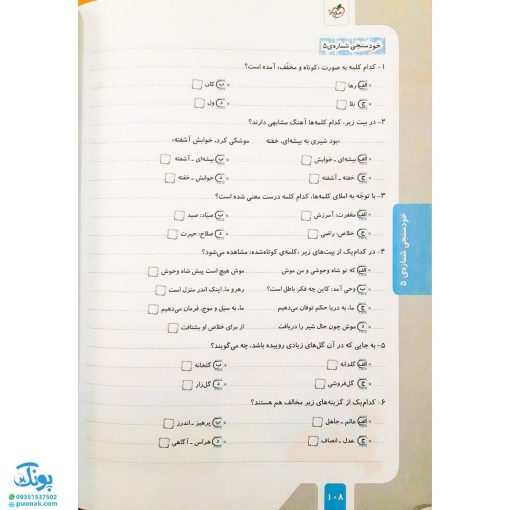 خودسنجی شماره‌ی ۵
۱- کدام کلمه به صورت «کوتاه و مخفّف» آمده است؟
الف) رها ب) کان
ج) بلا د) ول
۲- در بیت زیر، کدام کلمه‌ها آهنگ مشابهی دارند؟
«بود شیری به بیشه‌ای، خفته موشکی کرد، خوابش آشفته»
الف) بیشه‌ای ـ خوابش ب) بیشه‌ای ـ آشفته
ج) خفته ـ آشفته د) خوابش ـ خفته
۳- با توجّه به املای کلمه‌ها، کدام کلمه درست معنی شده است؟
الف) مغفرت: آمرزش ب) صیّاد: صید
ج) خلاص: راضی د) صلاح: حیرت
۴- در کدام‌یک از بیت‌های زیر «کلمه‌ی کوتاه‌شده» مشاهده می‌شود؟
الف) که تو شاه وحوشی و من موش موش هیچ است پیش شاه وحوش
ب) وحی آمد: کاین چه فکر باطل است؟ رهرو ما، اینک اندر منزل است
ج) ما، به دریا حکم توفان می‌دهیم ما، به سیل و موج، فرمان می‌دهیم
د) موش چون حال شیر را دریافت از برای خلاص او بشتافت
۵- به جایی که در آن گل‌های زیادی روییده باشد، چه می‌گویند؟
الف) گلدانه ب) گلخانه
ج) گل‌فروشی د) گل‌زار
۶- کدام‌یک از گزینه‌های زیر مخالف هم هستند؟
الف) عالم ـ جاهل ب) پرهیز ـ اندرز
ج) عدل ـ انصاف د) هراس ـ آگاهی
خودسنجی شماره‌ی ۵
۱۰۸
پونک
09351537502
puonak.com